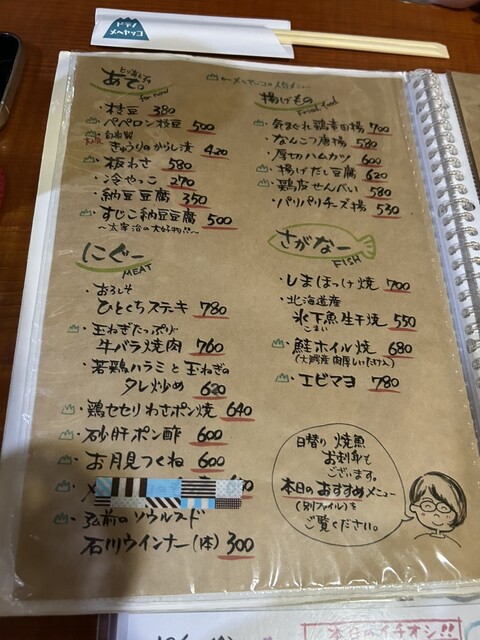 ドテノ
メヘヤッコ
あて。
for food
・枝豆 380
・ペペロン枝豆 500
・自家製
きゅうりのからし漬 420
・板わさ 580
・冷やっこ 270
・納豆豆腐 350
・すじこ納豆豆腐 500
〜太宰治の大好物!!〜
にぐー
MEAT
・おろしそ
ひとくちステーキ 780
・玉ねぎたっぷり
牛バラ焼肉 760
・若鶏ハラミと玉ねぎの
タレ炒め 620
・鶏セセリわさポン焼 640
・砂肝ポン酢 600
・お月見つくね 600
・弘前のソウルフード
石川ウインナー(1本) 300
揚げもの
Fried food
・気まぐれ鶏唐田揚 700
・なんこつ唐揚 580
・厚切ハムカツ 600
・揚げだし豆腐 620
・鶏皮せんべい 580
・パリパリチーズ揚 530
さがなー
FISH
・しまほっけ焼 700
・北海道産
氷下魚生干焼 550
こまい
・鮭ホイル焼 680
(大鰐産肉厚しいたけ入)
・エビマヨ 780
日替り 焼魚
お刺身も
ございます。
本日のおすすめメニュー
(別ファイル)を
ご覧ください。
本日のイチオシ!!